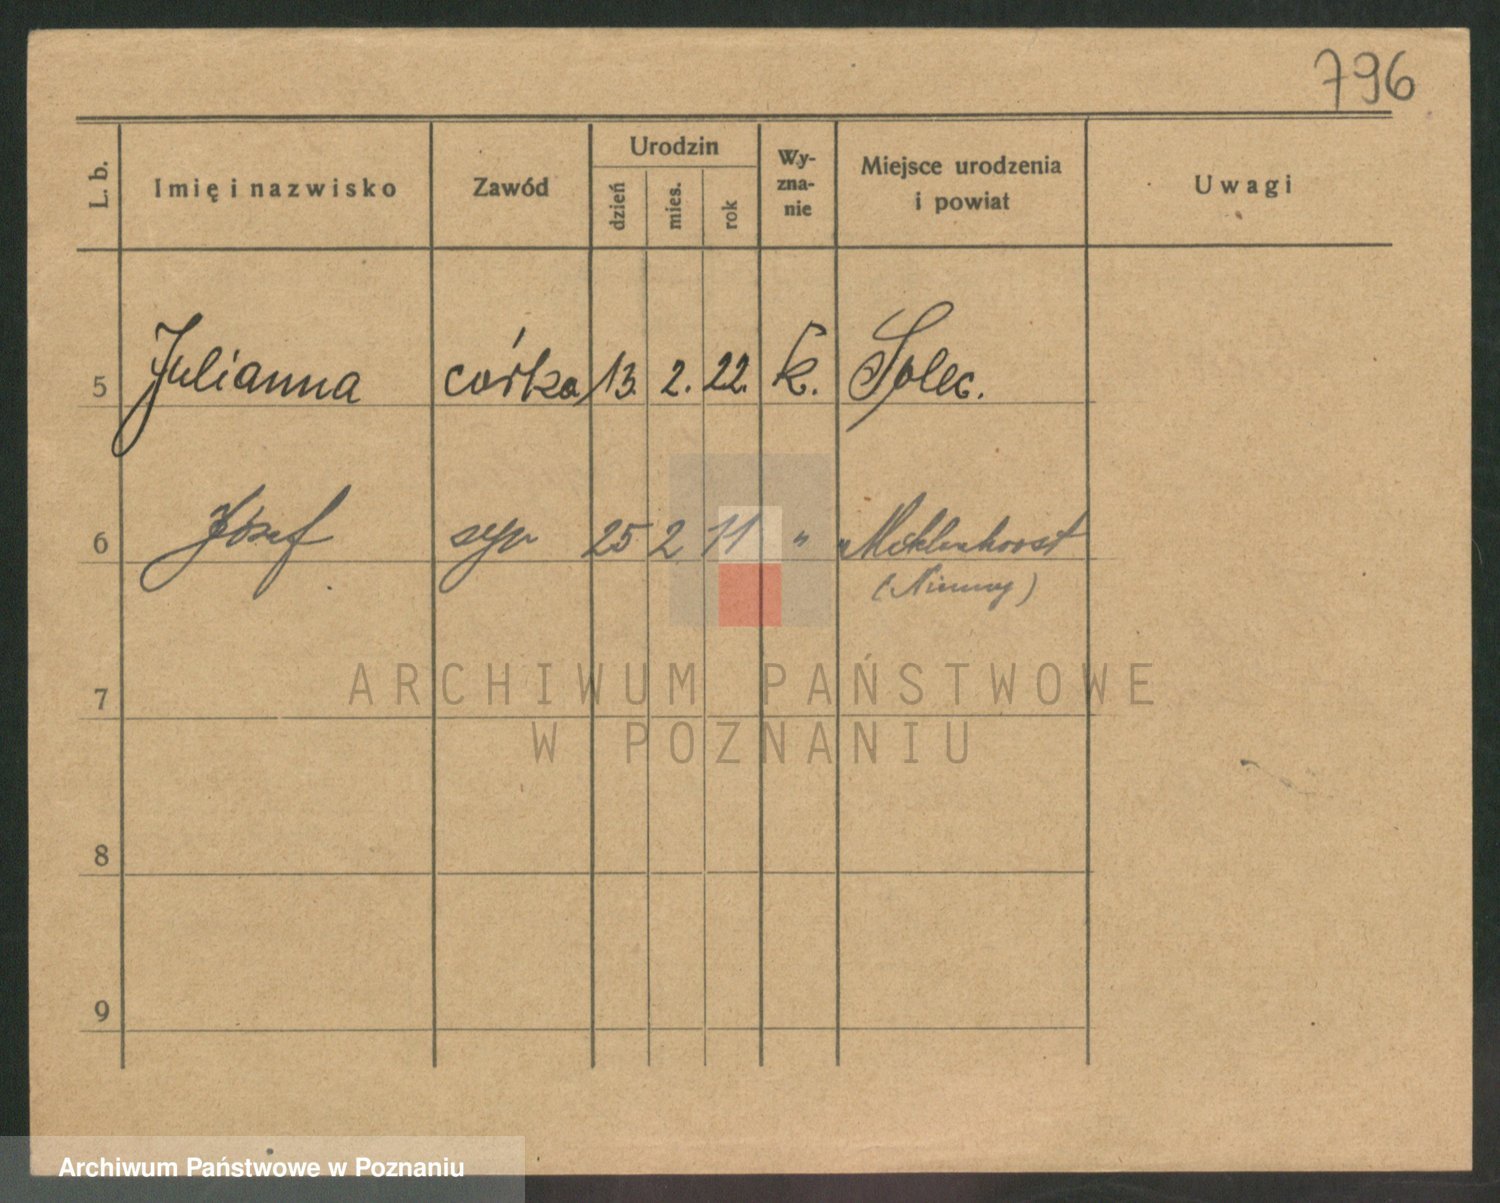 796
L. b.
Imię i nazwisko
Zawód
Urodzin
dzień
mies.
rok
Wy-
zna-
nie
Miejsce urodzenia
i powiat
Uwagi
5 Julianna córka 13. 2. 22. k. Solec.
6 Józef syn 25 2 11 "
(Niemcy)
7
8
9
ARCHIWUM PAŃSTWOWE
W POZNANIU
Archiwum Państwowe w Poznaniu